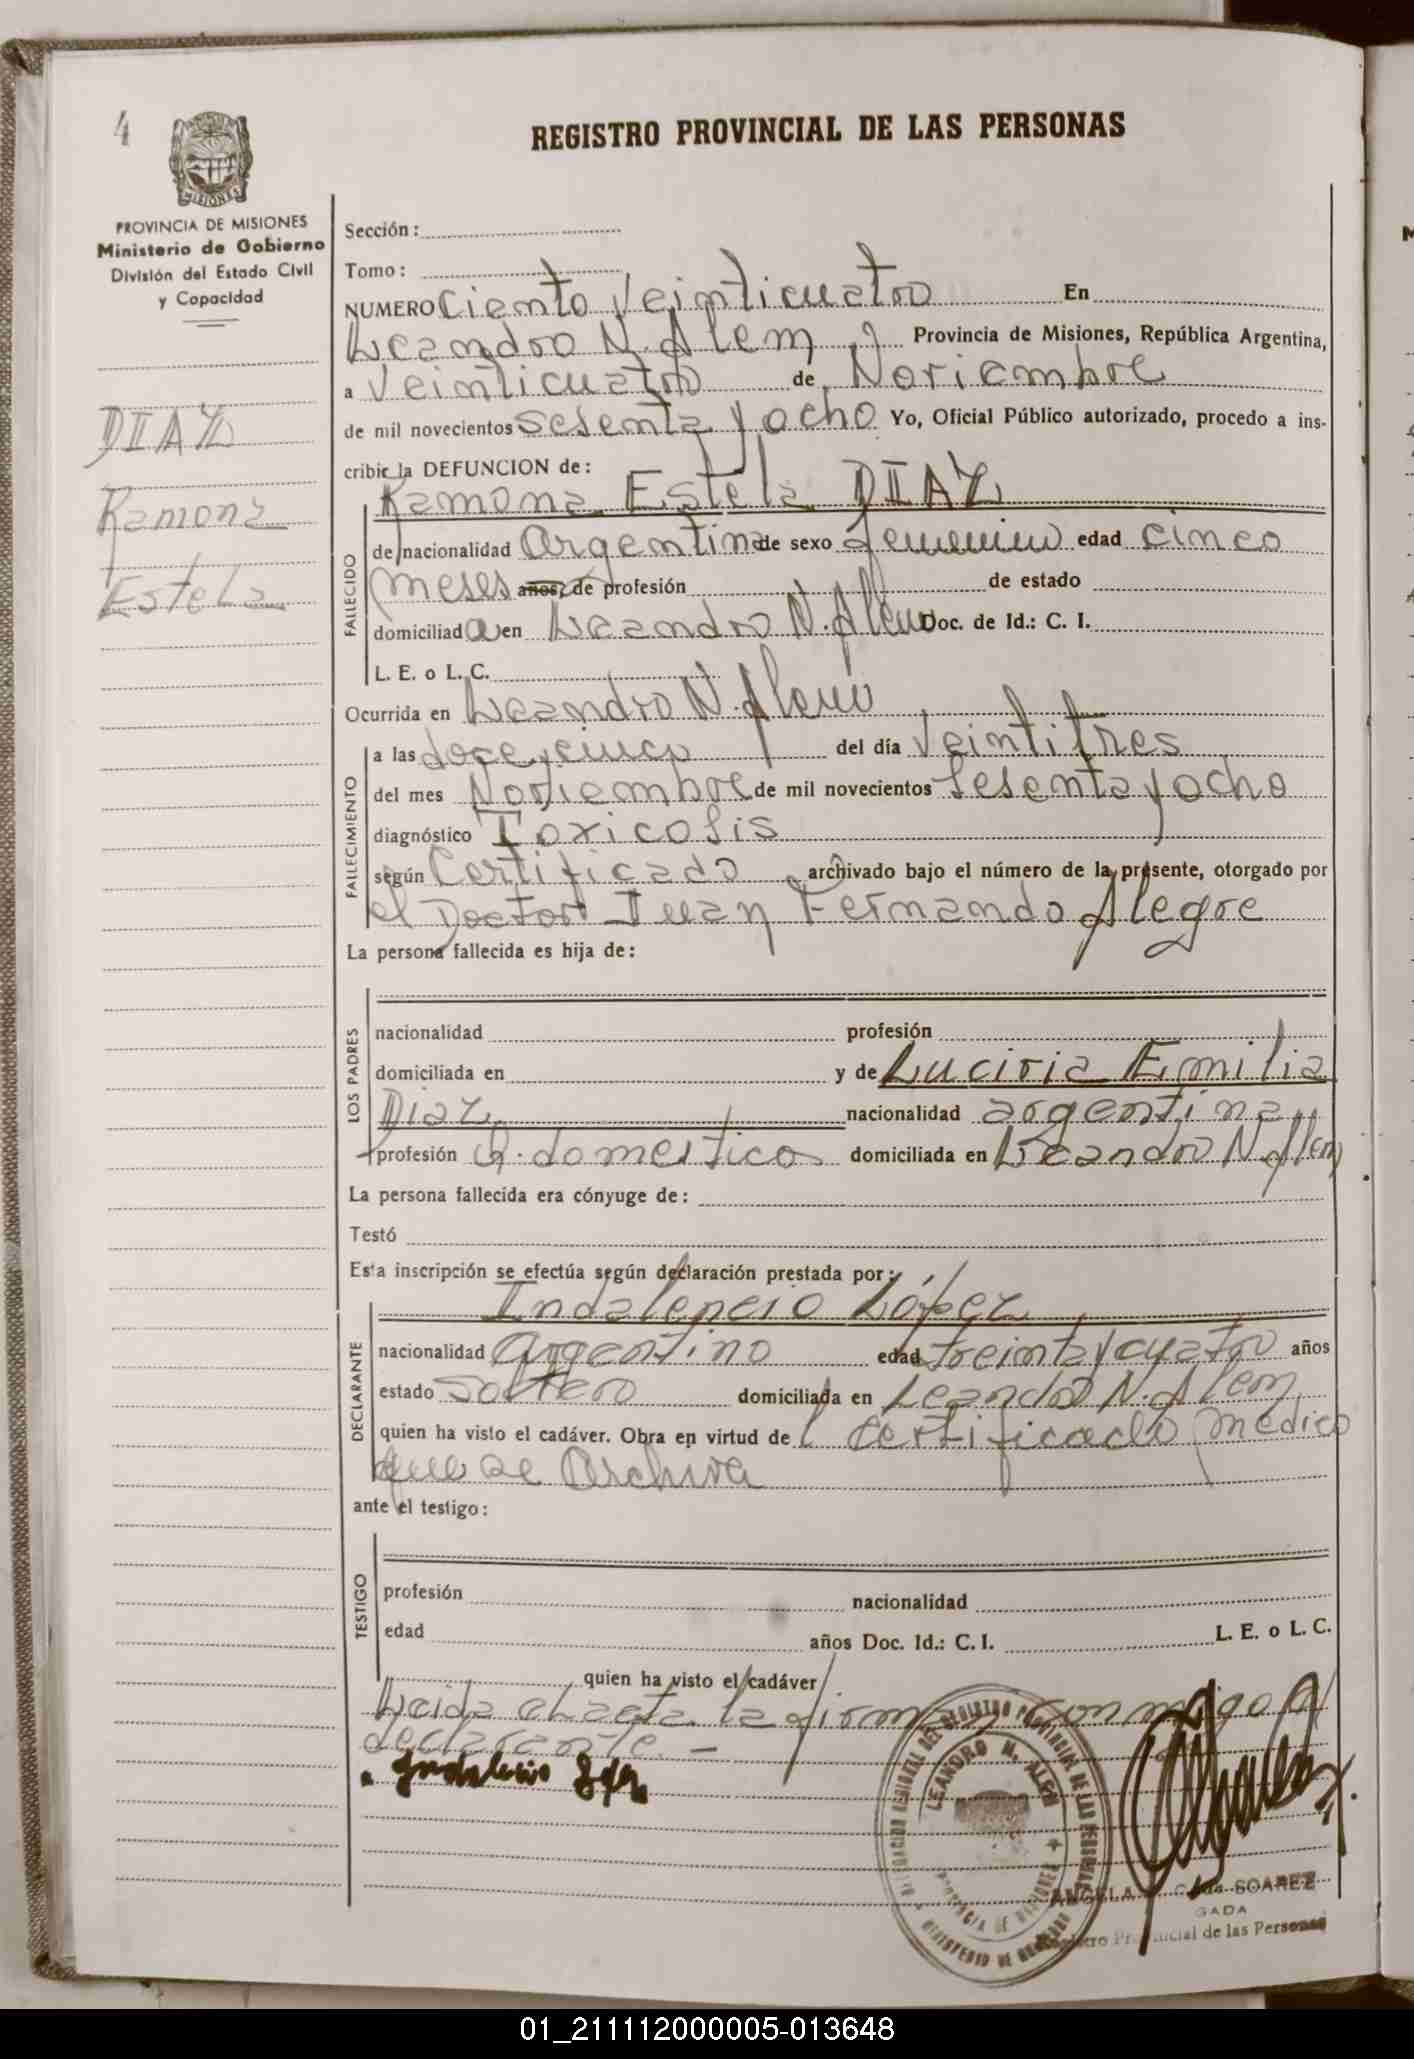 4
MISIONES
PROVINCIA DE MISIONES
Ministerio de Gobierno
División del Estado Civil
y Capacidad
DIAZ
Ramona
Estela
REGISTRO PROVINCIAL DE LAS PERSONAS
Sección:
Tomo:
NUMERO Ciento Veinticuatro En
Leandro N. Alem Provincia de Misiones, República Argentina,
a Veinticuatro de Noviembre
de mil novecientos sesenta y ocho Yo, Oficial Público autorizado, procedo a ins-
cribir la DEFUNCION de:
Ramona Estela DIAZ
FALLECIDO
de nacionalidad Argentina de sexo femenino edad cinco
meses años, de profesión de estado
domiciliada en Leandro N. Alem Doc. de Id.: C. I.
L. E. o L. C.
Ocurrida en Leandro N. Alem
FALLECIMIENTO
a las doce y cinco del día Veintitres
del mes Noviembre de mil novecientos sesenta y ocho
diagnóstico Toxicosis
según Certificado archivado bajo el número de la presente, otorgado por
el Doctor Juan Fernando Alegre
La persona fallecida es hija de:
LOS PADRES
nacionalidad profesión
domiciliada en y de Luciria Emilia
Diaz nacionalidad argentina
profesión Q. domesticos domiciliada en Leandro N. Alem
La persona fallecida era cónyuge de:
Testó
Esta inscripción se efectúa según declaración prestada por:
Indalencio López
DECLARANTE
nacionalidad Argentino edad treinta y cuatro años
estado soltero domiciliada en Leandro N. Alem
quien ha visto el cadáver. Obra en virtud del certificado medico
que se archiva
ante el testigo:
TESTIGO
profesión nacionalidad
edad años Doc. Id.: C. I. L. E. o L. C.
quien ha visto el cadáver
Leida el acta la firma conmigo el
declarante. -
LEANDRO N. ALEM
PROVINCIA DE MISIONES
MINISTERIO DE GOBIERNO
ANGELA SOAREZ
GADA
Provincial de las Personas
01_211112000005-013648